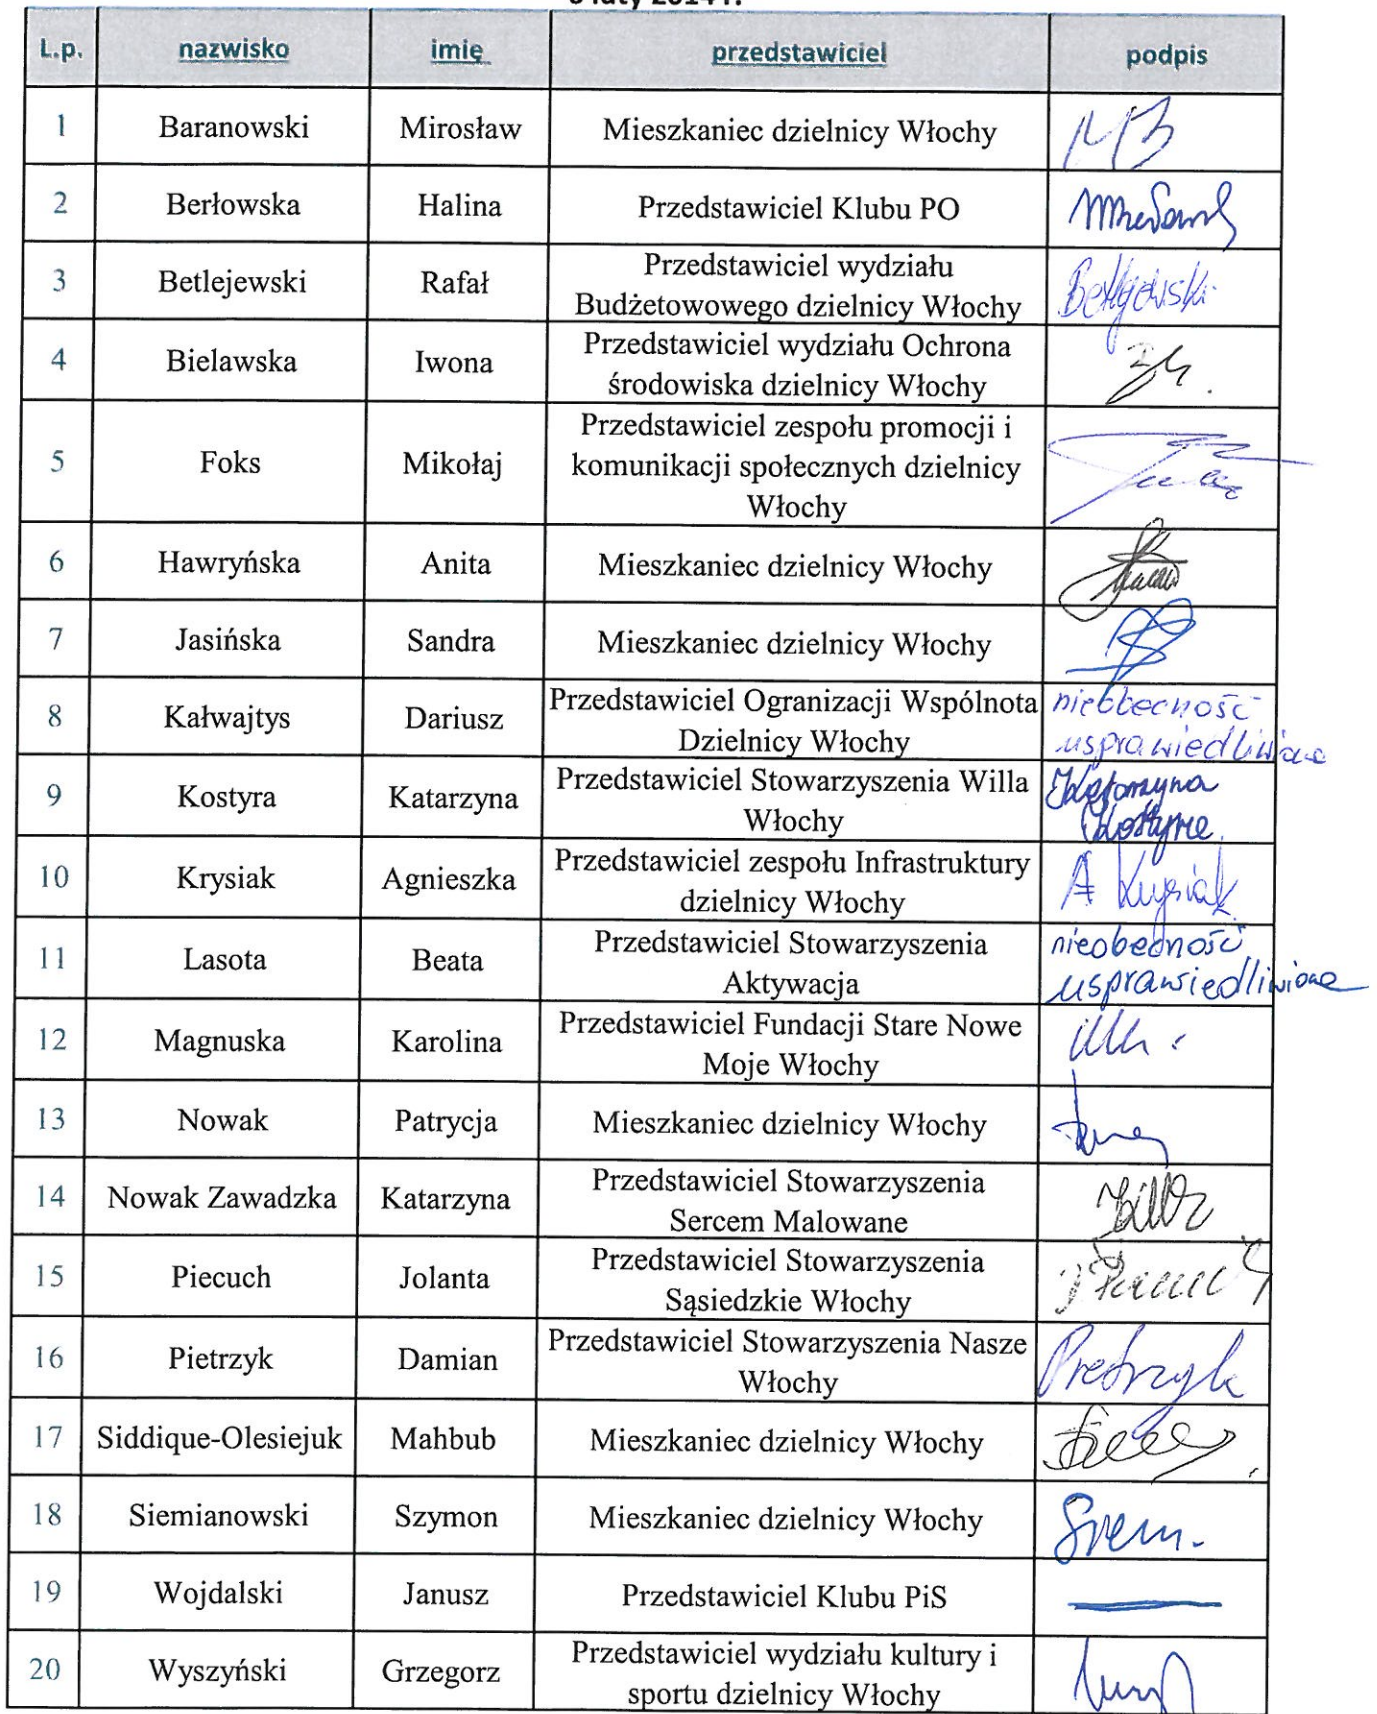 luty 2014 r.
L.p. nazwisko imię przedstawiciel podpis
1 Baranowski Mirosław Mieszkaniec dzielnicy Włochy MB
2 Berłowska Halina Przedstawiciel Klubu PO
3 Betlejewski Rafał Przedstawiciel wydziału
Budżetowowego dzielnicy Włochy Betlejewski
4 Bielawska Iwona Przedstawiciel wydziału Ochrona
środowiska dzielnicy Włochy
5 Foks Mikołaj Przedstawiciel zespołu promocji i
komunikacji społecznych dzielnicy
Włochy
6 Hawryńska Anita Mieszkaniec dzielnicy Włochy
7 Jasińska Sandra Mieszkaniec dzielnicy Włochy
8 Kałwajtys Dariusz Przedstawiciel Ogranizacji Wspólnota nieobecność
Dzielnicy Włochy usprawiedliwiona
9 Kostyra Katarzyna Przedstawiciel Stowarzyszenia Willa Katarzyna
Włochy Kostyra
10 Krysiak Agnieszka Przedstawiciel zespołu Infrastruktury
dzielnicy Włochy A Krysiak
11 Lasota Beata Przedstawiciel Stowarzyszenia nieobecność
Aktywacja usprawiedliwiona
12 Magnuska Karolina Przedstawiciel Fundacji Stare Nowe
Moje Włochy
13 Nowak Patrycja Mieszkaniec dzielnicy Włochy
14 Nowak Zawadzka Katarzyna Przedstawiciel Stowarzyszenia
Sercem Malowane
15 Piecuch Jolanta Przedstawiciel Stowarzyszenia
Sąsiedzkie Włochy J Piecuch
16 Pietrzyk Damian Przedstawiciel Stowarzyszenia Nasze
Włochy Pietrzyk
17 Siddique-Olesiejuk Mahbub Mieszkaniec dzielnicy Włochy
18 Siemianowski Szymon Mieszkaniec dzielnicy Włochy Siem.
19 Wojdalski Janusz Przedstawiciel Klubu PiS
20 Wyszyński Grzegorz Przedstawiciel wydziału kultury i
sportu dzielnicy Włochy